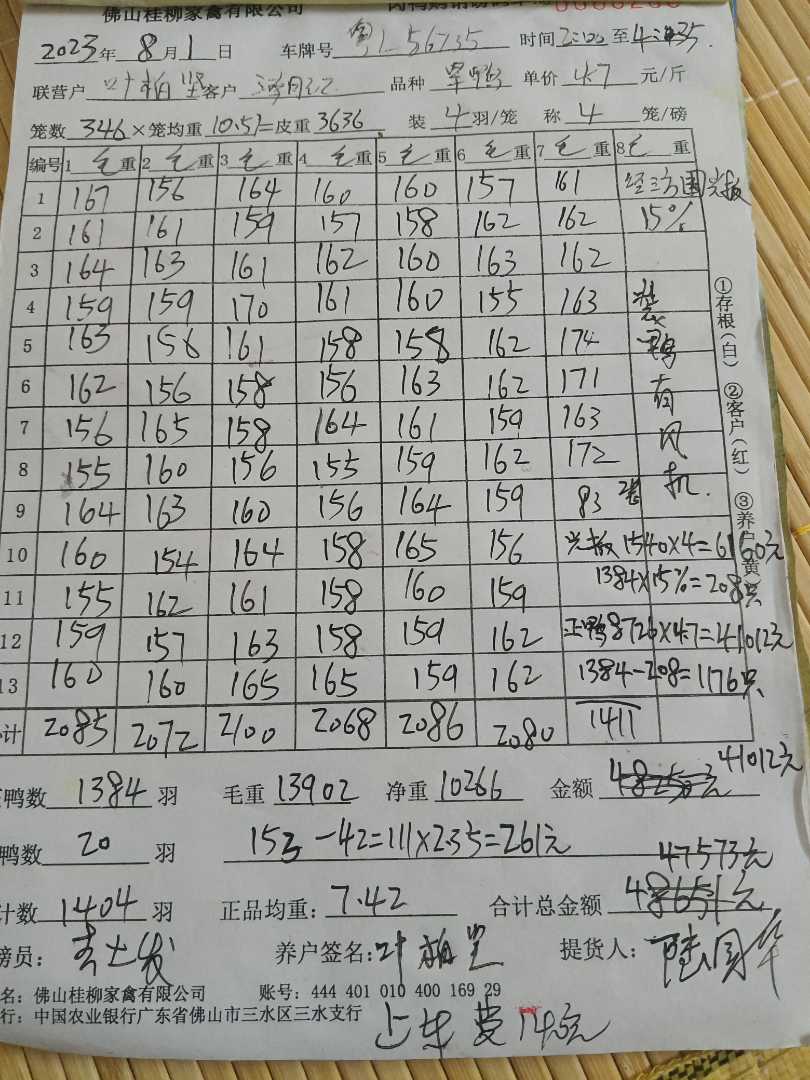 佛山桂柳家禽有限公司
2023年 8月 1日 车牌号 粤L56735 时间 2:00 至 4:35
联营户 叶柏坚 客户 品种 单价 4.7 元/斤
笼数 346 × 笼均重 10.51 = 皮重 3636 装 4 羽/笼 称 4 笼/磅
编号 1 毛重 2 毛重 3 毛重 4 毛重 5 毛重 6 毛重 7 毛重 8 毛重
1 167 156 164 160 160 157 161
2 161 161 159 157 158 162 162 15%
3 164 163 161 162 160 163 162
4 159 159 170 161 160 155 163 装
5 163 156 161 158 158 162 174 鸭
6 162 156 158 156 163 162 171 有
7 156 165 158 164 161 159 163 风
8 155 160 156 155 159 162 172 机.
9 164 163 160 156 164 159 83
10 160 154 164 158 165 156 1540×4=6160元
11 155 162 161 158 160 159 1384×15%=208只
12 159 157 163 158 159 162 正鸭8726×4.7=41012元
13 160 160 165 165 159 162 1384-208=1176只
计 2085 2072 2100 2068 2086 2080 1411
①存根(白) ②客户(红) ③养户(黄)
鸭数 1384 羽 毛重 13902 净重 10266 金额 48250元 41012元
鸭数 20 羽 153-42=111×2.35=261元
47573元
计数 1404 羽 正品均重: 7.42 合计总金额 48651元
磅员: 养户签名: 叶柏坚 提货人: 陆国华
名: 佛山桂柳家禽有限公司 账号: 444 401 010 400 169 29
行: 中国农业银行广东省佛山市三水区三水支行
上车费